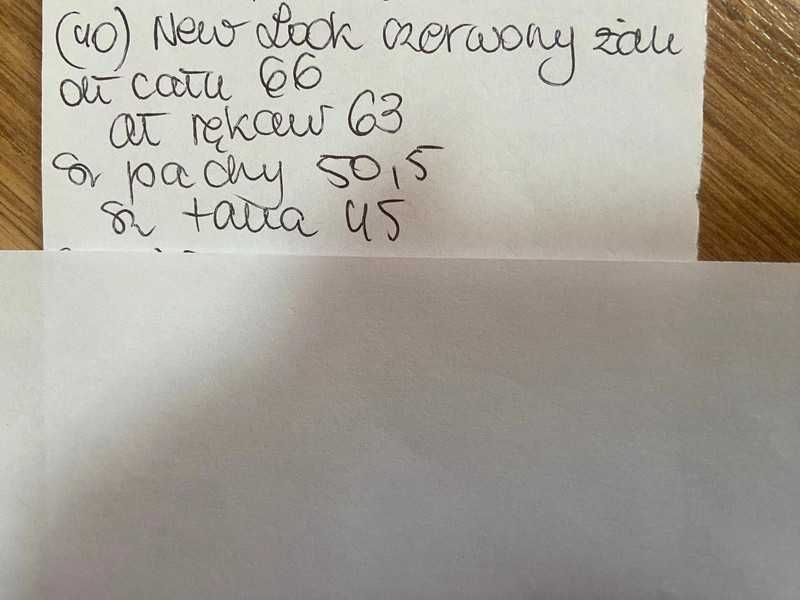 (40) New Look czerwony żak
dł całk 66
dł rękaw 63
sz pachy 50,5
sz talia 45